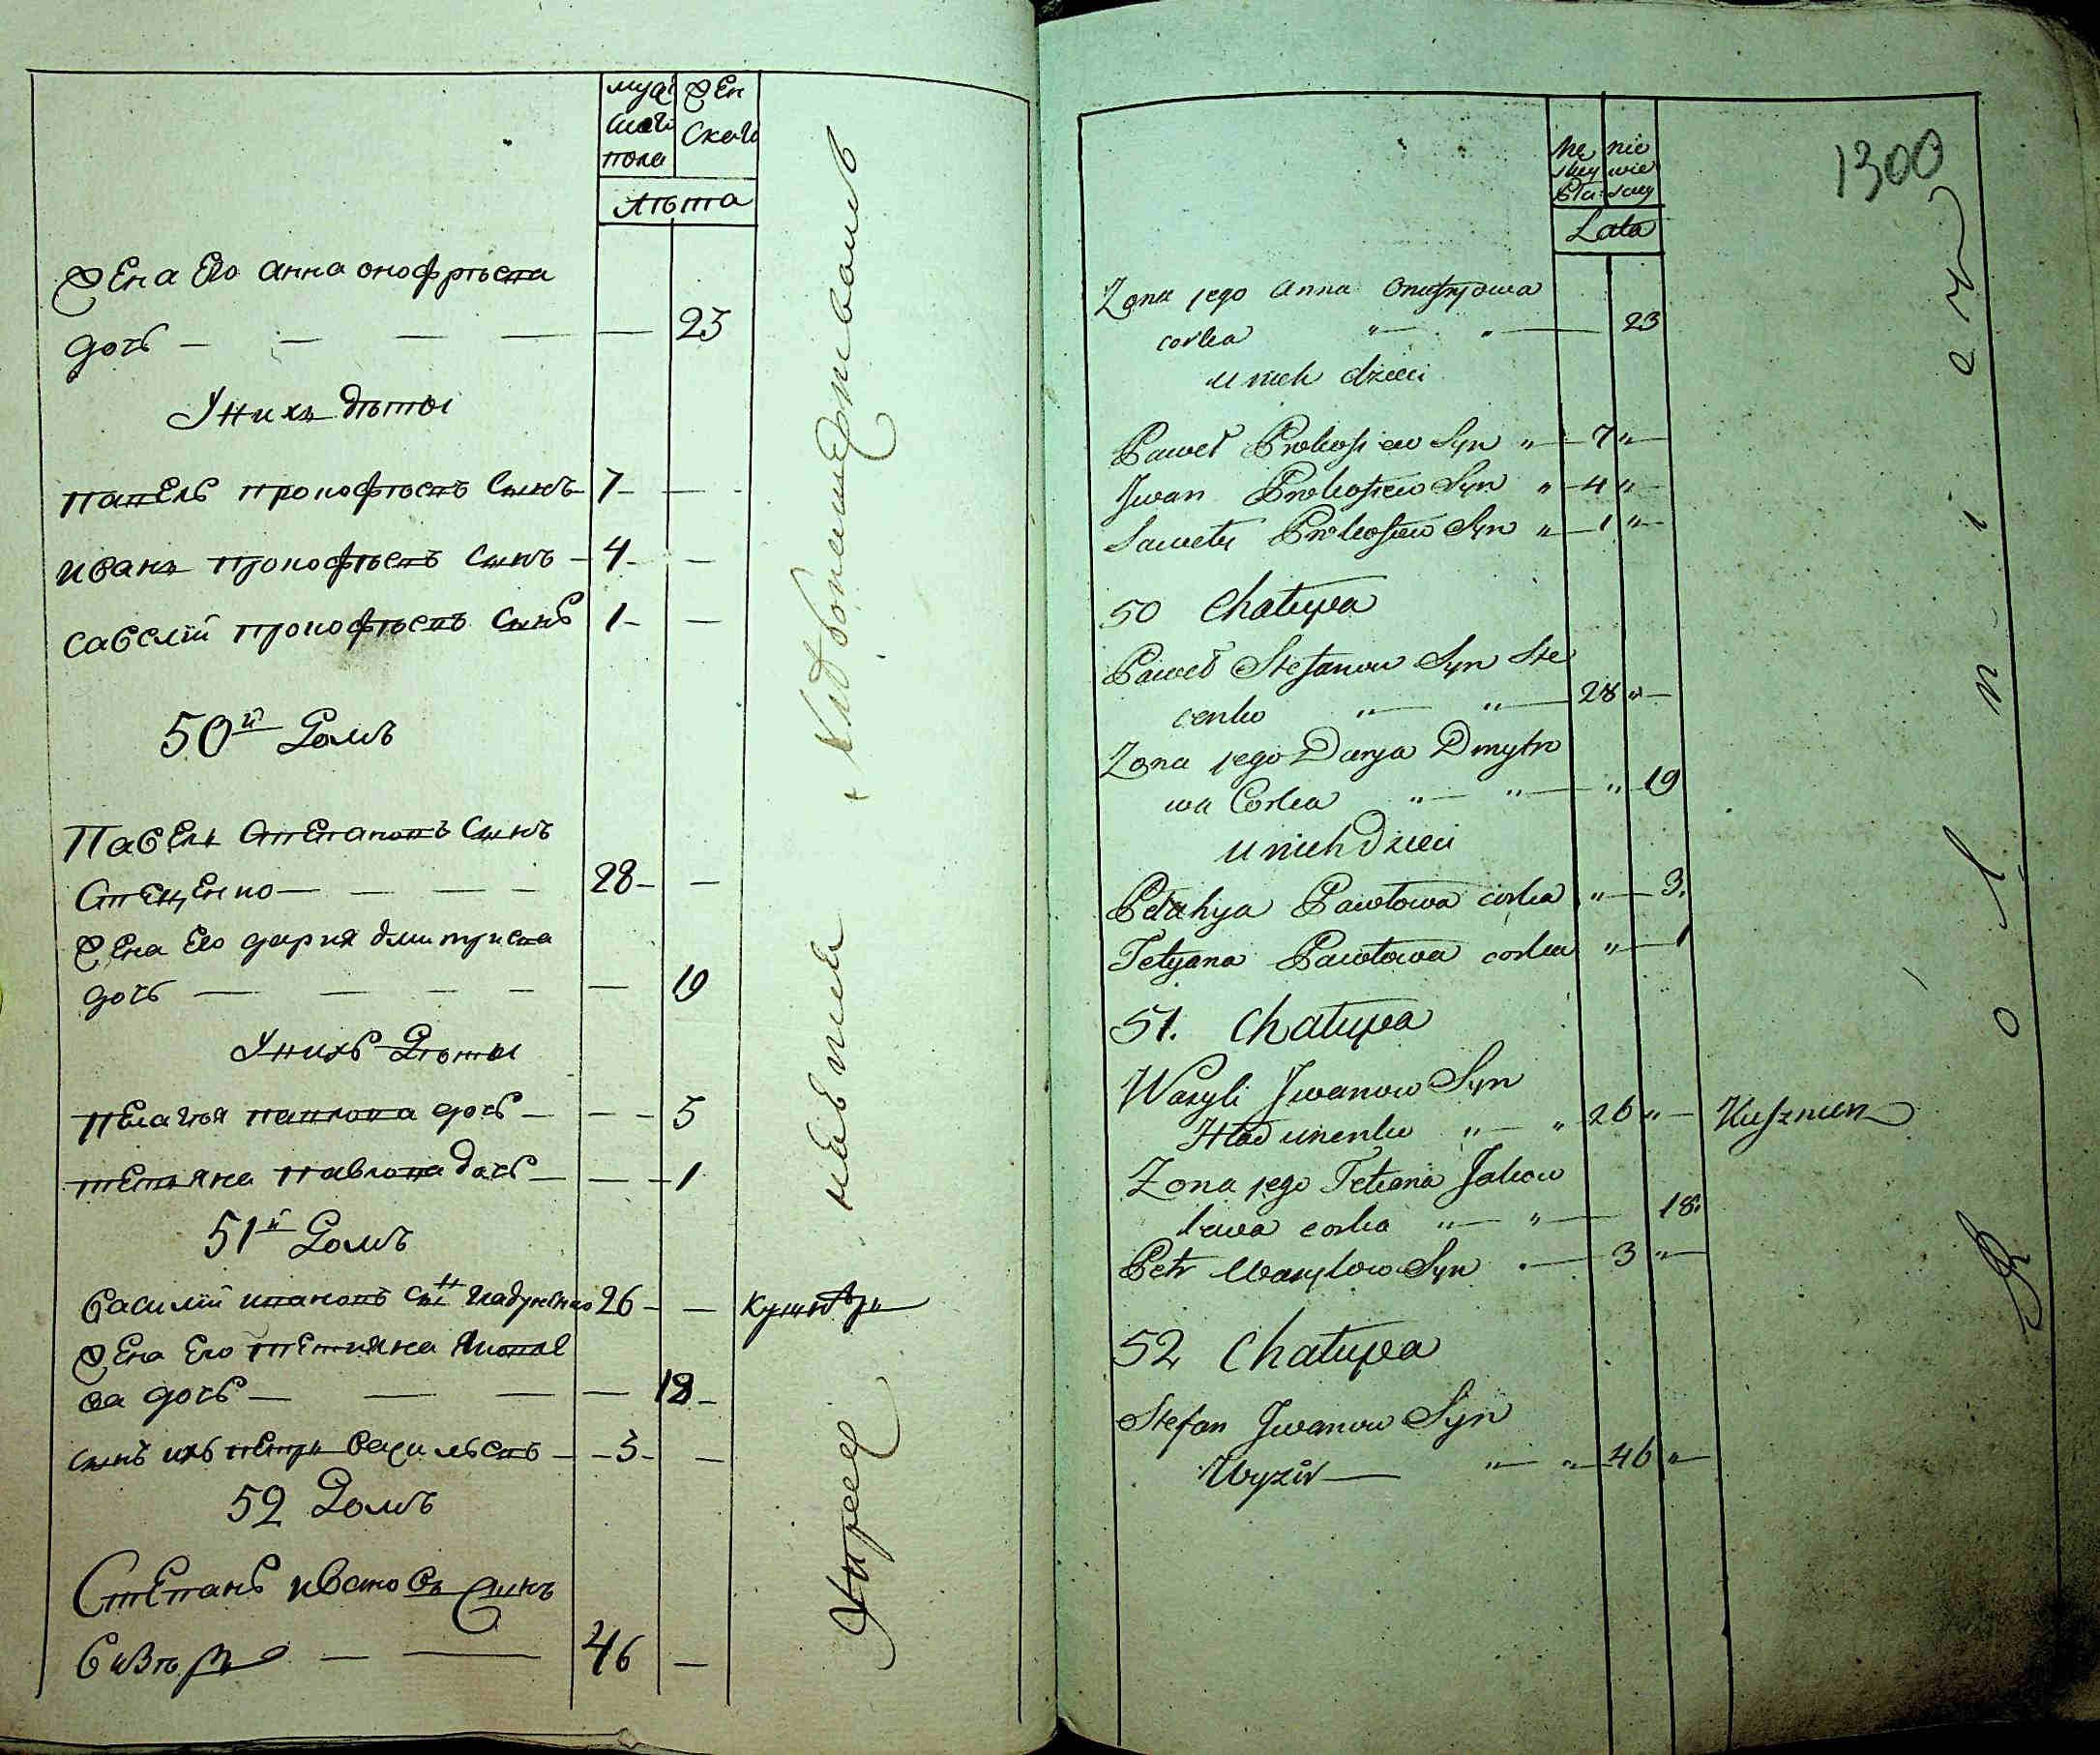 муж ской пола
жен ского
лѣта
жена его анна онофрѣева
дочь — — — — — 23
У нихъ дѣты
павель прокофѣевъ сынъ 7 —
иванъ прокофѣевъ сынъ — 4 —
савелій прокофѣевъ сынъ 1 —
50й Домъ
Павелъ Степановъ сынъ
Стеценко — — — — 28 —
жена его дария дмитриева
дочь — — — — — 19
У нихъ Дѣты
пелагѣя павлова дочь — — — 3
тетяна павлова дочь — — — 1
51й Домъ
василій ивановъ сынъ гладуненко 26 — — кушнѣръ
жена его тетияна яковле
ва дочь — — — — 18 —
сынъ ихъ петръ васильевъ — — 3 — —
52 Домъ
Степанъ ивановъ сынъ
визѣръ — — 46 —
1300
Mę skiey Płci
nie wie sciey
Lata
Zona jego Anna Onufryowa
corka " — " — 23
u nich dzieci
Paweł Prokofiew Syn " — 7 " —
Jwan Prokofiew Syn " — 4 " —
Sawely Prokofiew Syn " — 1 " —
50 Chałupa
Paweł Stefanow Syn Ste
cenko " — " — 28 " —
Zona jego Darya Dmytro
wa Corka " — " — " 19
u nich Dzieci
Pelahya Pawłowa corka " — 3.
Tetyana Pawłowa corka " — 1
51. Chałupa
Wasyli Jwanow Syn
Hładunenko " — " 26 " — Kusznierz
Zona jego Tetiana Jakow
lewa corka " — " — 18.
Petr Wasylow Syn . — 3 " —
52 Chałupa
Stefan Jwanow Syn
Wyzir — " — " — 46 " —